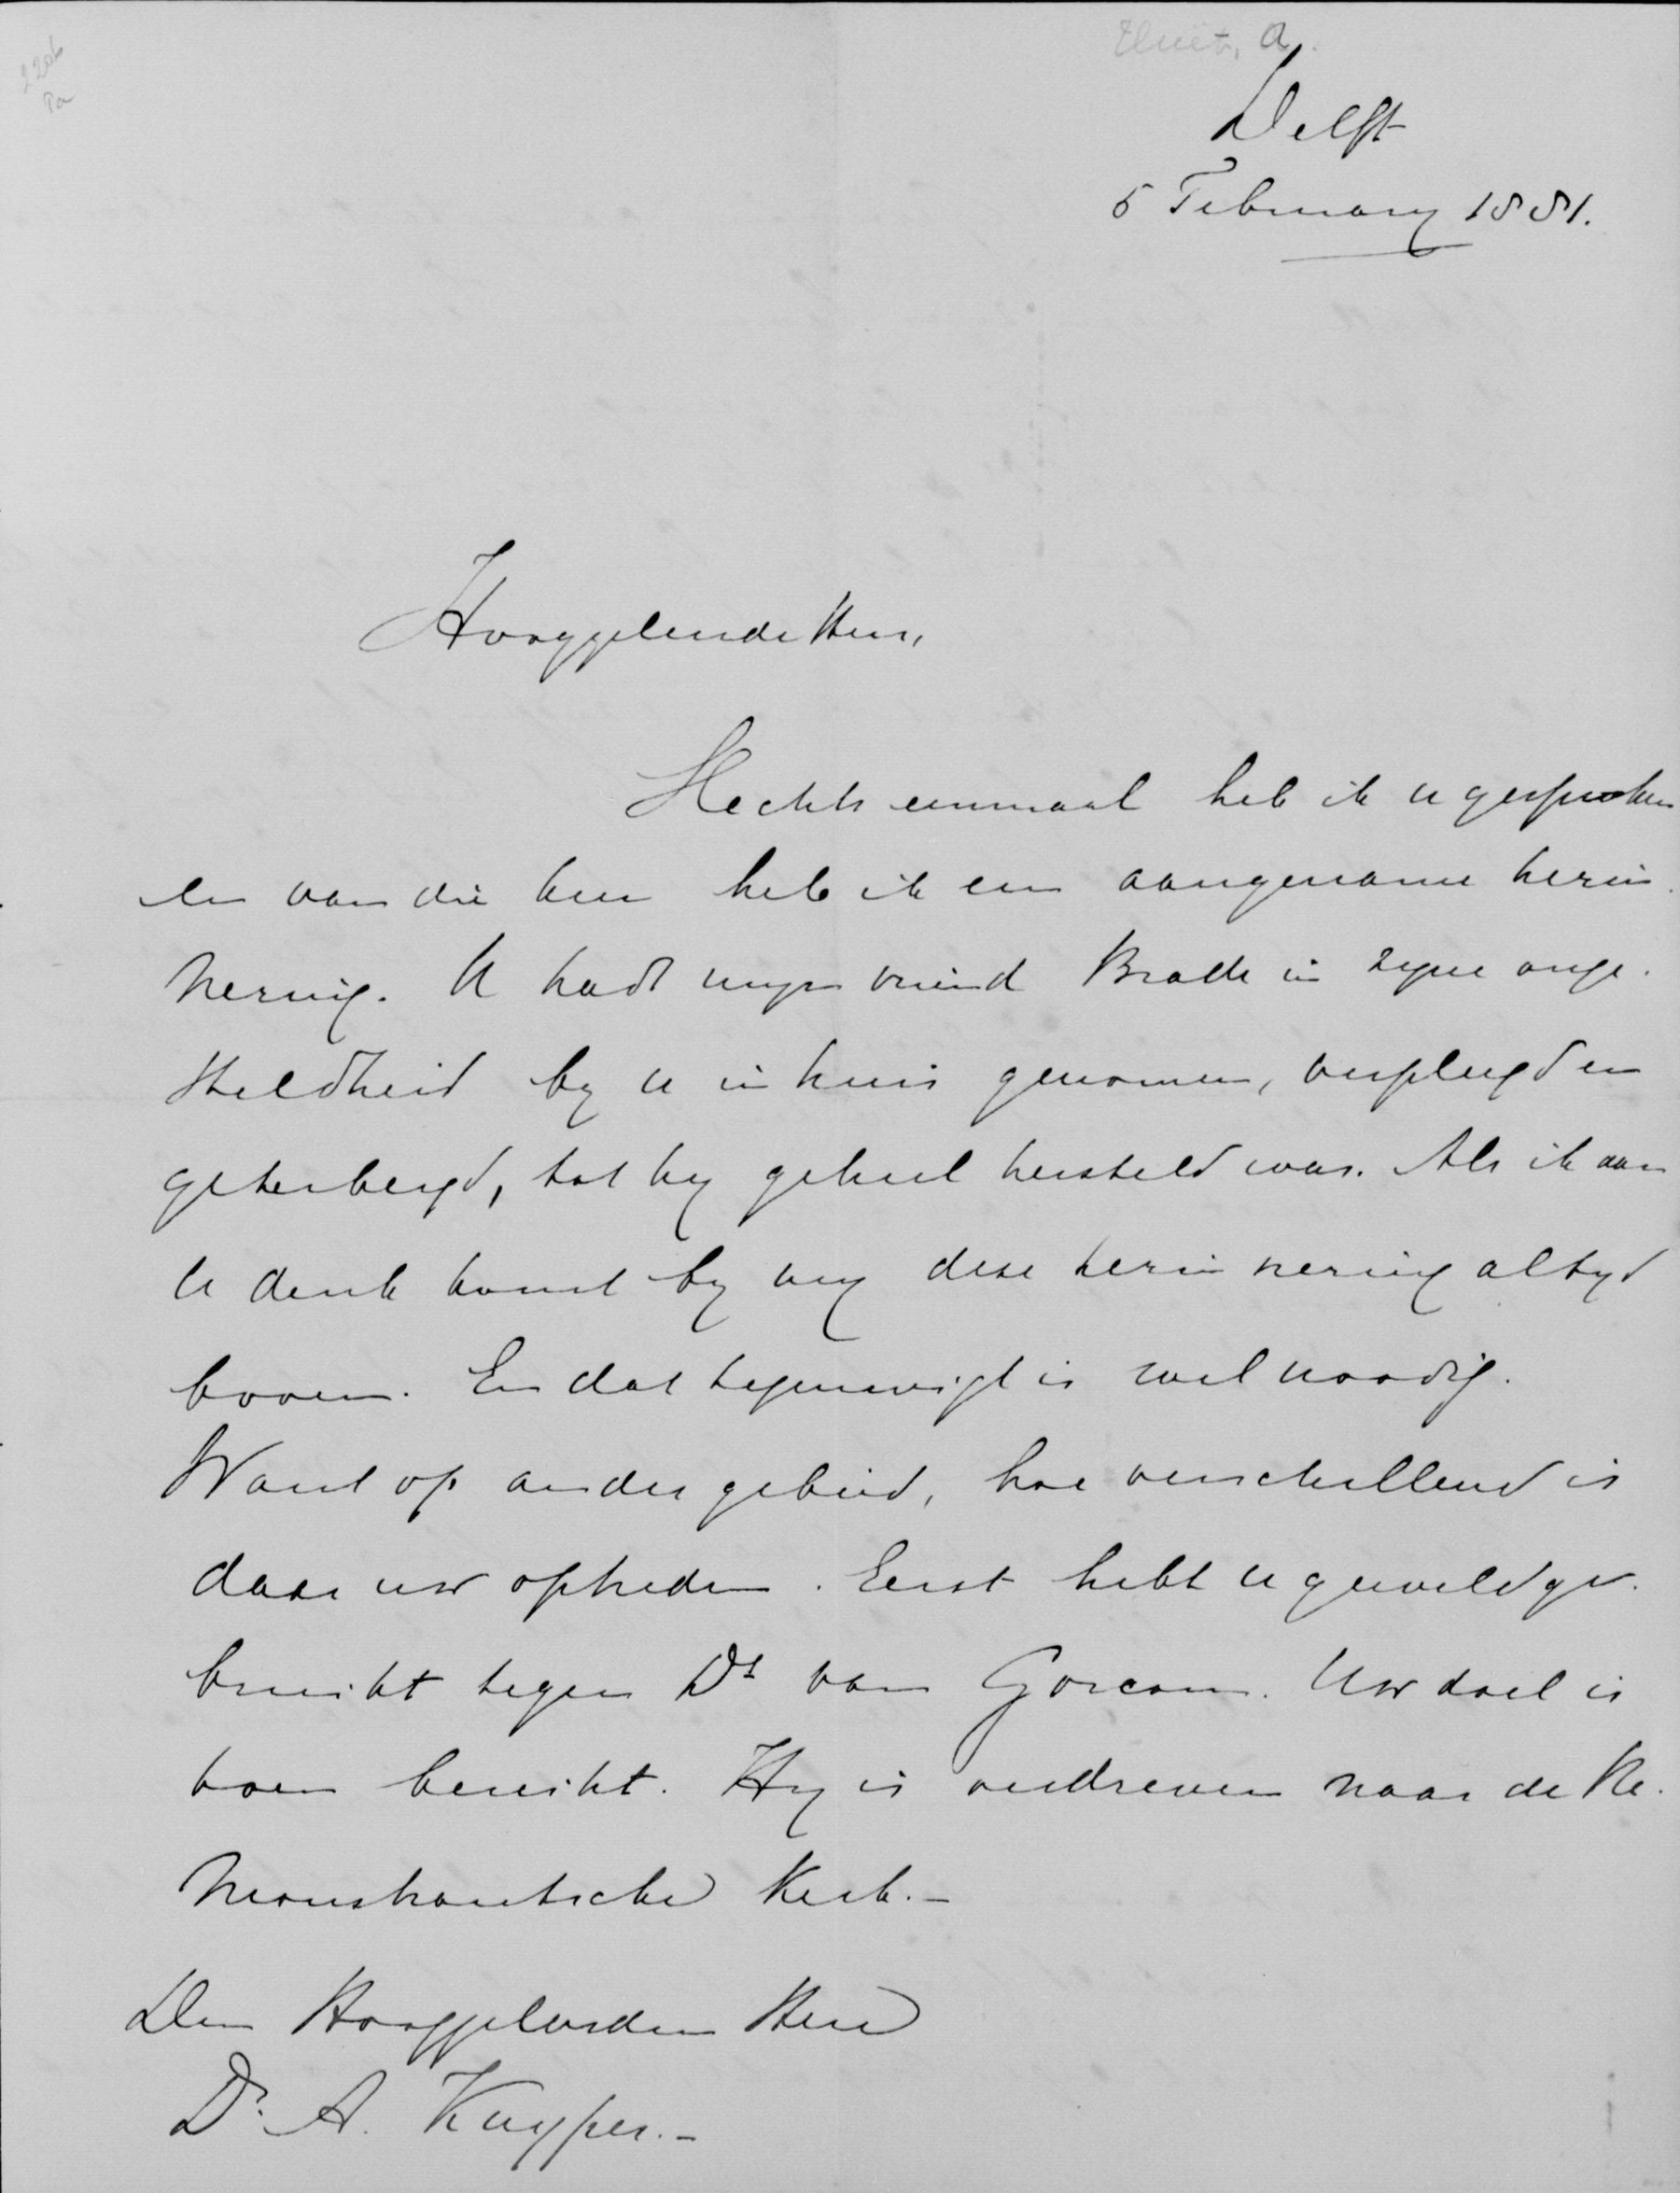 Delft
5 February 1881.
Hooggeleerde Heer,
Slechts eenmaal heb ik u gesproken
en van die keer heb ik een aangename herin
nering. U hadt myn vriend in zyne onge-
steldheid by u in huis genomen, verpleegd en
geherbergd, tot hy geheel hersteld was. Als ik aan
U denk komt by my deze herinnering altyd
boven. En dat tegenwigt is wel noodig.
Want op ander gebied, hoe verschillend is
daar uw optreden. Eerst hebt u geweld ge-
bruikt tegen Ds van Gorcom. Uw doel is
toen bereikt. Hy is verdreven naar de Re-
monstrantsche Kerk.-
Den Hooggeleerden Heer
Dr. A. Kuyper.-